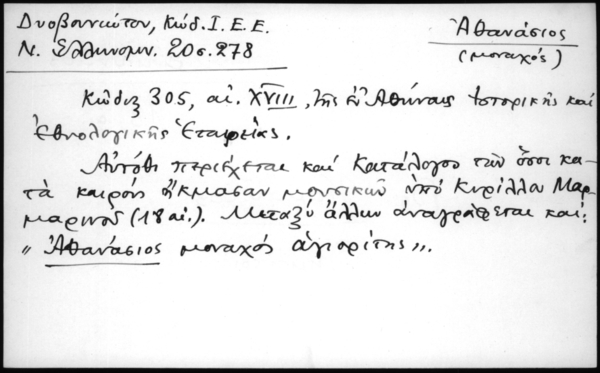 Δυοβουνιώτου, Κώδ. Ι. Ε. Ε.
Ν. Ἑλληνομν. 20 σ. 278
Ἀθανάσιος
(μοναχός)
Κῶδιξ 305, αἰ. XVIII, τῆς ἐν Ἀθήναις Ἱστορικῆς καὶ
Ἐθνολογικῆς Ἑταιρείας.
Αὐτόθι περιέχεται καὶ Κατάλογος τῶν ὅσοι κα-
τὰ καιρὸν ἤκμασαν μουσικῶν ὑπὸ Κυρίλλου Μαρ-
μαρινοῦ (18 αἰ.). Μεταξὺ ἄλλων ἀναγράφεται καί:
"Ἀθανάσιος μοναχός ἁγιορίτης".